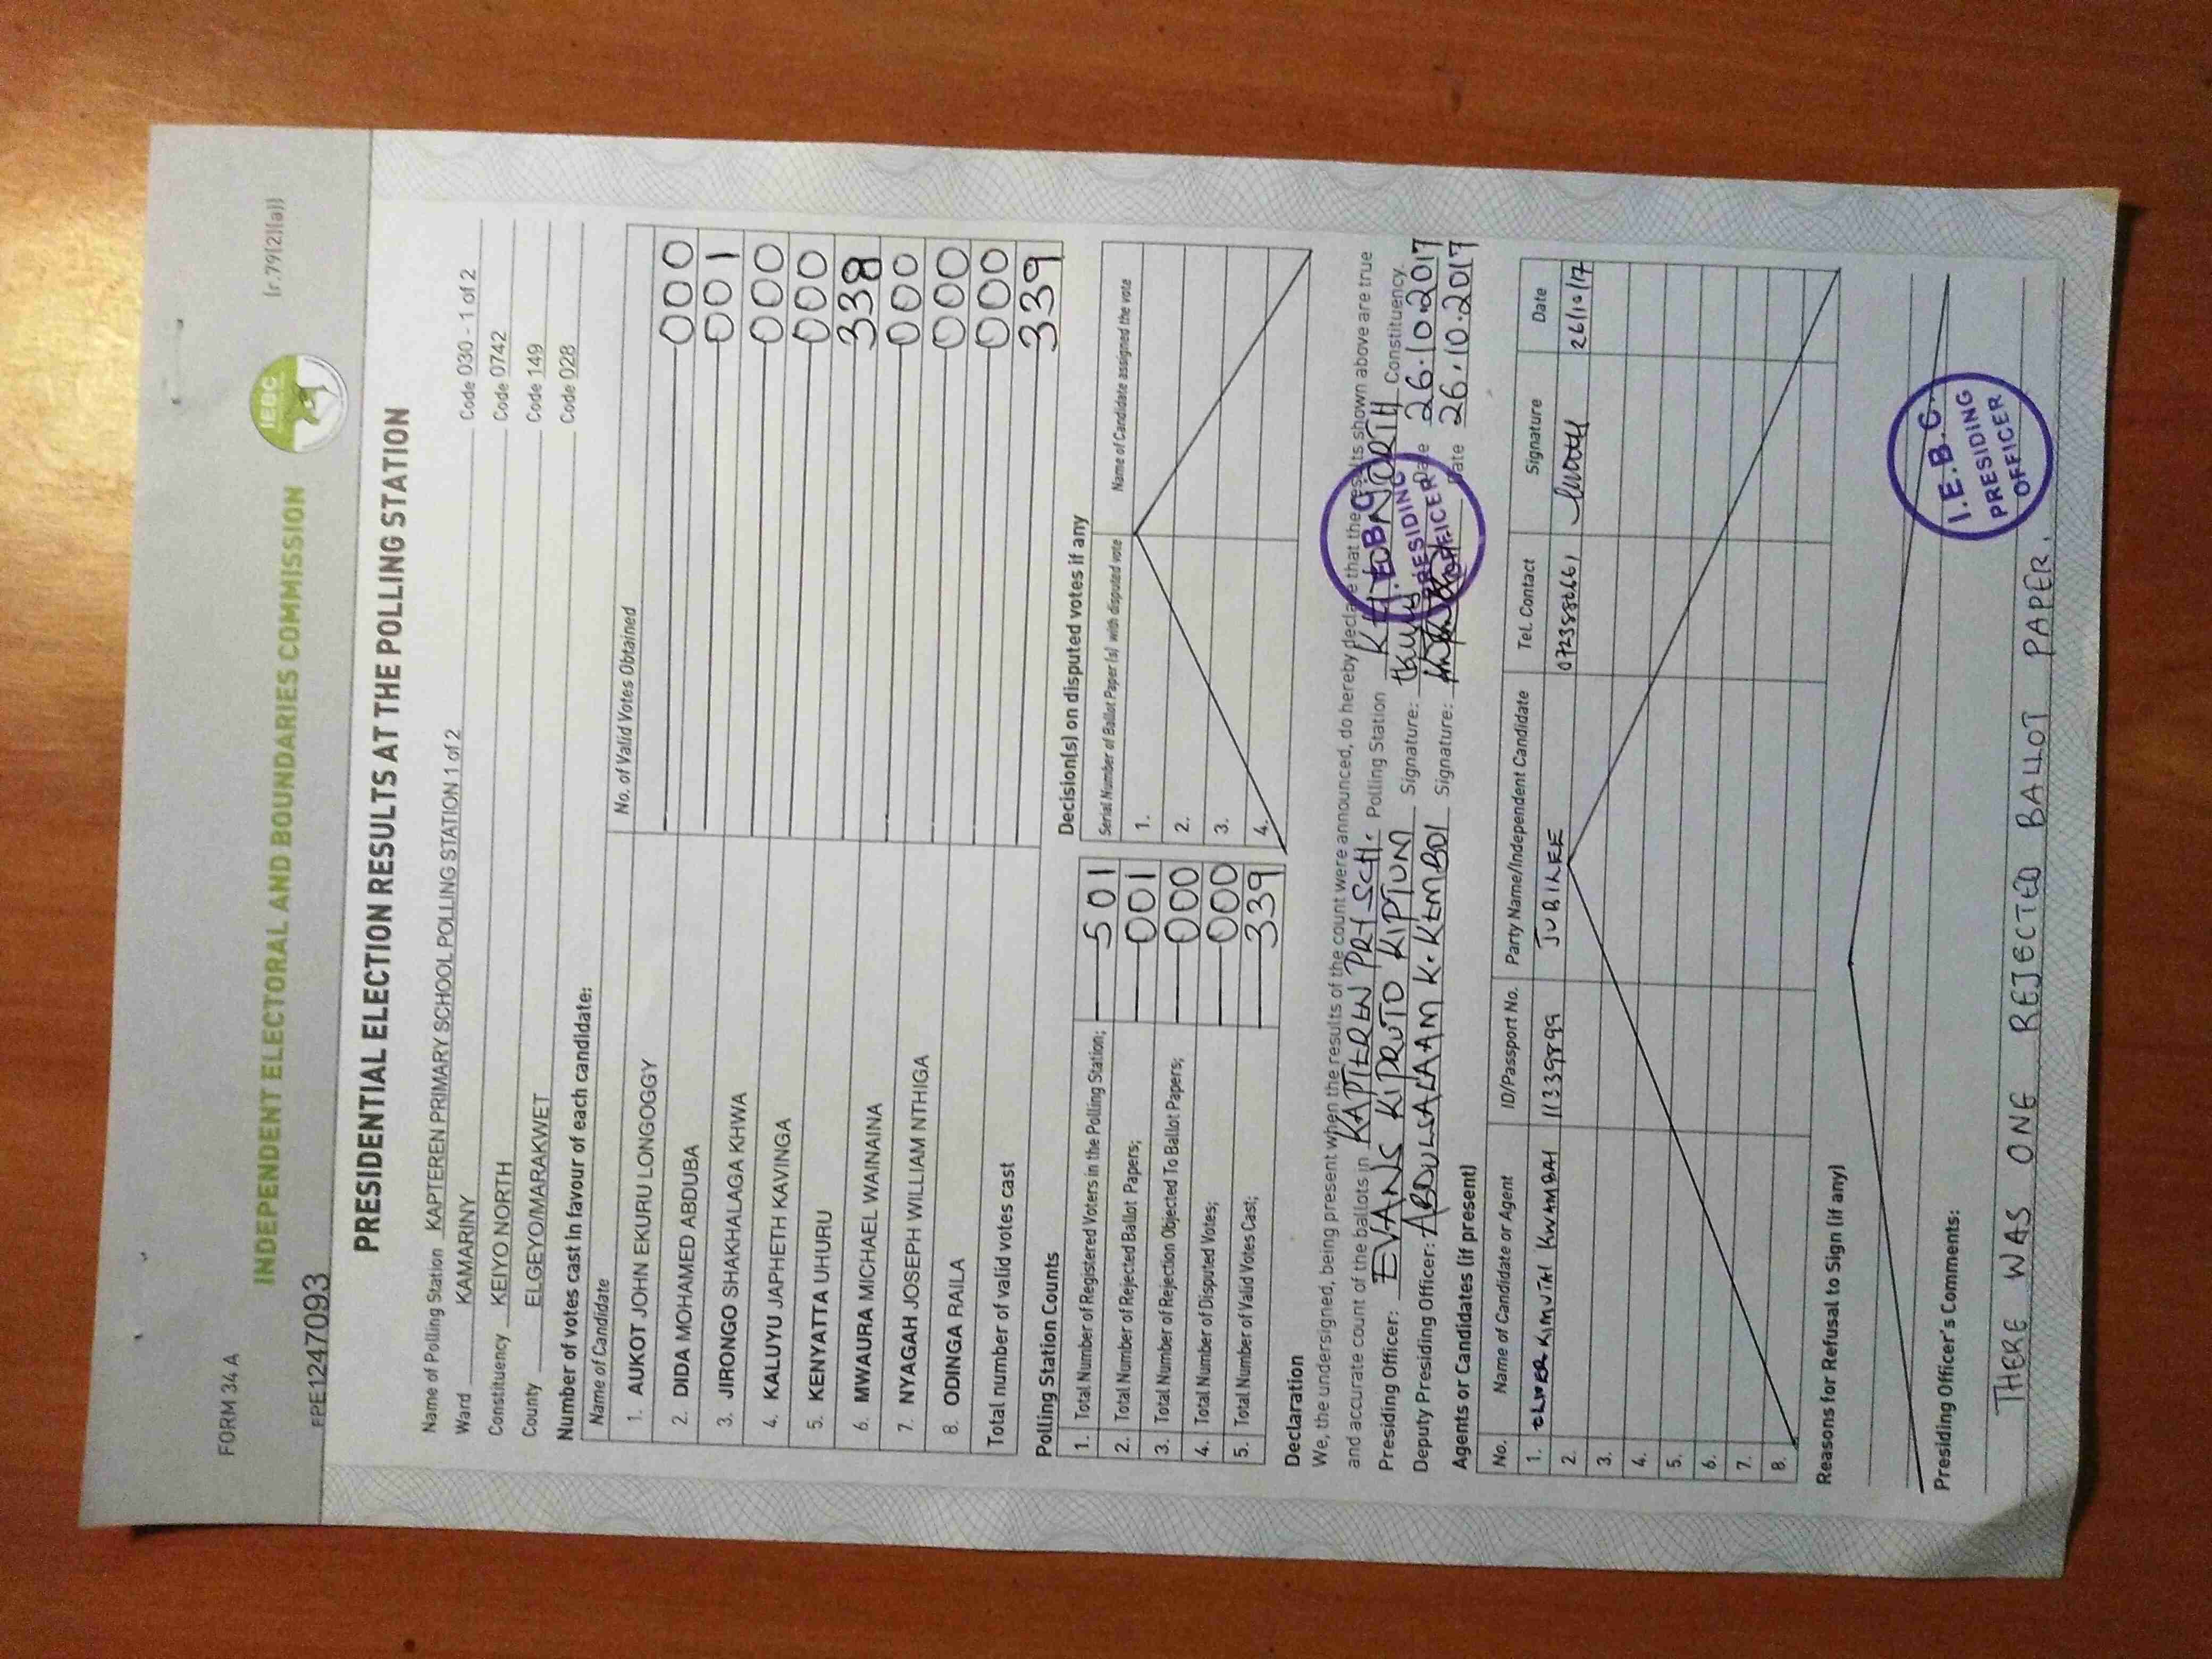 FORM 34 A
INDEPENDENT ELECTORAL AND BOUNDARIES COMMISSION
IEBC
(r.79(2)(a))
PRESIDENTIAL ELECTION RESULTS AT THE POLLING STATION
Name of Polling Station KAPTEREN PRIMARY SCHOOL POLLING STATION 1 of 2 Code 030 - 1 of 2
Ward KAMARINY Code 0742
Constituency KEIYO NORTH Code 149
County ELGEYO/MARAKWET Code 028
Number of votes cast in favour of each candidate:
Name of Candidate No. of Valid Votes Obtained
1. AUKOT JOHN EKURU LONGOGGY 000
2. DIDA MOHAMED ABDUBA 001
3. JIRONGO SHAKHALAGA KHWA 000
4. KALUYU JAPHETH KAVINGA 000
5. KENYATTA UHURU 338
6. MWAURA MICHAEL WAINAINA 000
7. NYAGAH JOSEPH WILLIAM NTHIGA 000
8. ODINGA RAILA 000
Total number of valid votes cast 339
Polling Station Counts
1. Total Number of Registered Voters in the Polling Station; 501
2. Total Number of Rejected Ballot Papers; 001
3. Total Number of Rejection Objected To Ballot Papers; 000
4. Total Number of Disputed Votes; 000
5. Total Number of Valid Votes Cast; 339
Decision(s) on disputed votes if any
Serial Number of Ballot Paper (s) with disputed vote Name of Candidate assigned the vote
1.
2.
3.
4.
Declaration
We, the undersigned, being present when the results of the count were announced, do hereby declare that the results shown above are true
and accurate count of the ballots in KAPTEREN PRY SCH. Polling Station NORTH Constituency.
Presiding Officer: EVANS KIPRUTO KIPTUM Signature: Date 26.10.2017
Deputy Presiding Officer: ABDULSALAAM K. KEMBOI Signature: Date 26.10.2017
I.E.B.C.
PRESIDING
OFFICER
Agents or Candidates (if present)
No. Name of Candidate or Agent ID/Passport No. Party Name/Independent Candidate Tel. Contact Signature Date
1. KIMUTAI KWAMBAI 11339899 JUBILEE 26/10/17
2.
3.
4.
5.
6.
7.
8.
Reasons for Refusal to Sign (if any)
Presiding Officer's Comments:
THERE WAS ONE REJECTED BALLOT PAPER.
I.E.B.C.
PRESIDING
OFFICER